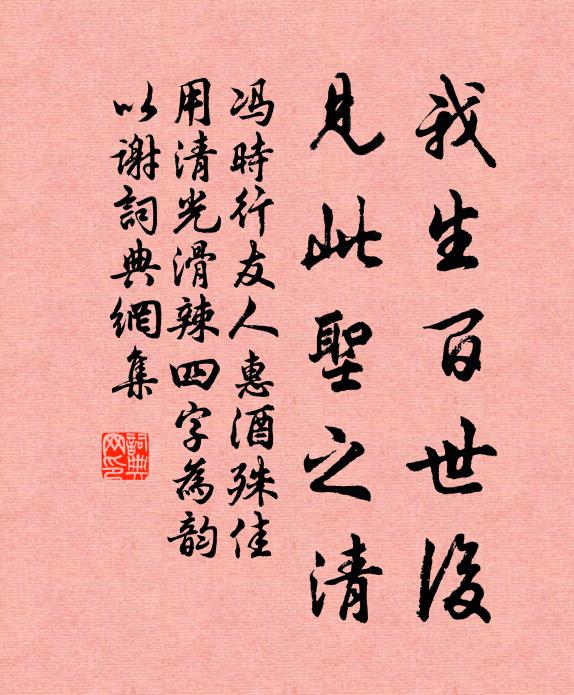 我生百世後
見此聖之清
馮時行友人惠酒殊佳
用清光滑辣四字為韵
以謝詞典網集
詞典网印